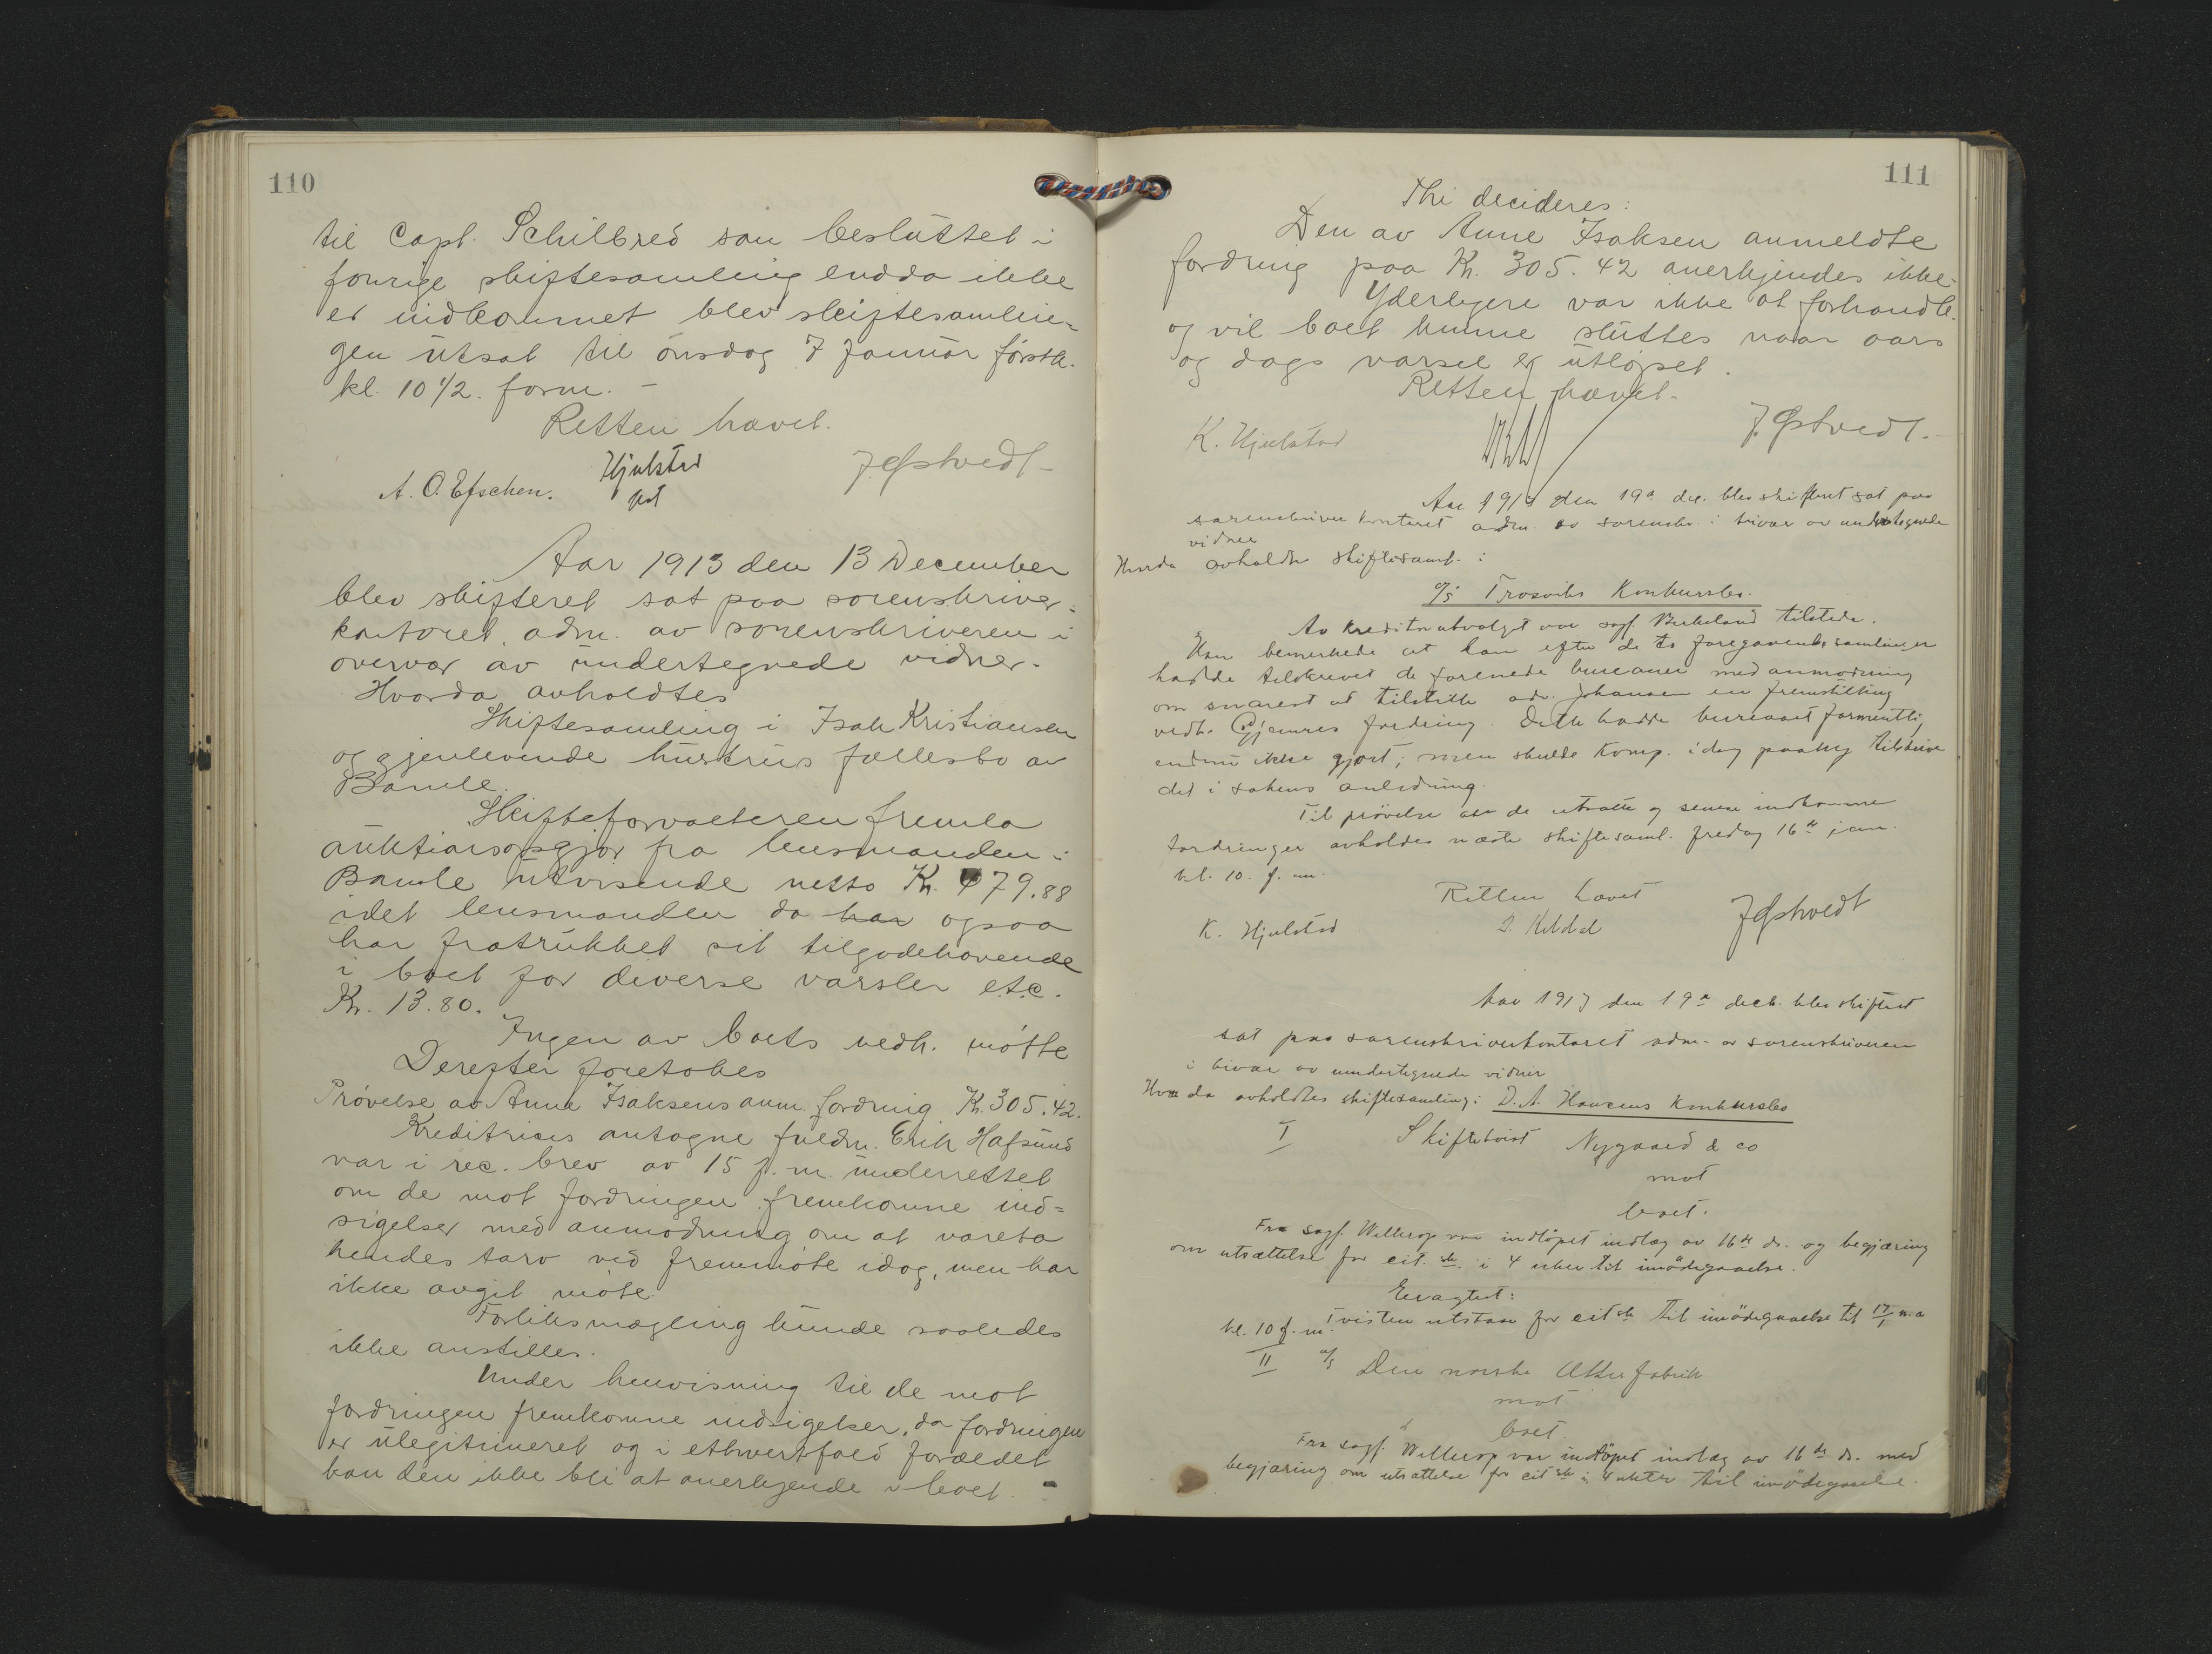 110
til Capt. Schilbred som besluttet i
forrige skiftesamling endda ikke
er indkommet blev skiftesamlin-
gen utsat til onsdag 7 Januar førstk.
kl. 10 1/2. form. -
Retten hævet.
A. O. Efschen. Hjulstad J. Østvedt -
Aar 1913 den 13 December
blev skifteret sat paa sorenskriver-
kontoret, adm. av sorenskriveren i
overvær av undertegnede vidner.
Hvorda avholdtes
Skiftesamling i Isak Kristiansen
og gjenlevende hustrus fællesbo av
Bamle.
Skifteforvalteren fremla
auktionsopgjør fra lensmanden i
Bamle utvisende netto Kr. 479.88
idet lensmanden da har ogsaa
har fratrukket sit tilgodehavende
i boet for diverse varsler etc.
Kr. 13.80.
Ingen av boets vedk. møtte
Derefter foretokes
Prøvelse av Anne Isaksens anm. fordring Kr. 305.42.
Kreditrices antagne fuldm. Erik Hafsund
var i rec. brev av 15 f. m. underrettet
om de mot fordringen fremkomne ind-
sigelser med anmodning om at vareta
hendes tarv ved fremmøte idag, men har
ikke avgit møte.
Forliksmægling kunde saaledes
ikke anstilles.
Under henvisning til de mot
fordringen fremkomne indsigelser, da fordringen
er ulegitimeret og i ethvertfald forældet
kan den ikke bli at anerkjende i boet.
111
Thi decideres:
Den av Anne Isaksen anmeldte
fordring paa Kr. 305.42 anerkjendes ikke.
Yderligere var ikke at forhandle
og vil boet kunne sluttes naar aars
og dags varsel er utløpet.
Retten hævet.
K. Hjulstad J. Østvedt.
Aar 1913 den 19de dec. blev skifteret sat paa
sorenskriver kontoret adm. av sorenskr. i bivær av undertegnede
vidner
Hvorda avholdtes skiftesaml. i
A/S Trosviks Konkursbo.
Av kreditorutvalget var sagf. Birkeland tilstede.
Han bemerkede at han efter de to foregaaende samlinger
hadde tilskrevet de forenede bureauer med anmodning
om snarest at tilstille adv. Johansen en fremstilling
vedk. Gjemres fordring. Dette hadde bureauet formentlig
endnu ikke gjort; men skulde komp. idag paany tilskrive
det i sakens anledning.
Til prøvelse av de utsatte og senere indkomne
fordringer avholdes næste skiftesaml. fredag 16de jan.
kl. 10. f. m.
Retten hævet
K. Hjulstad J. Østvedt
Aar 1913 den 19de decb. blev skifteret
sat paa sorenskriverkontoret adm. av sorenskriveren
i bivær av undertegnede vidner
Hvorda avholdtes skiftesamling i D. A. Hansens Konkursbo
I Skiftetvist Nygaard & co
mot
boet.
Fra sagf. Wellerop var indløpet indlæg av 16de ds. og begjæring
om utsættelse for cit. sk. i 4 uker til imødegaaelse.
Eragtet:
Tvisten utstaar for citsk til imødegaaelse til 17/1 n. a
kl. 10 f. m.
II A/S Den norske Æskefabrik
mot
boet.
Fra sagf. Wellerop var indløpet indlæg av 16de ds. med
begjæring om utsættelse for citsk i 4 uker til imødegaaelse.